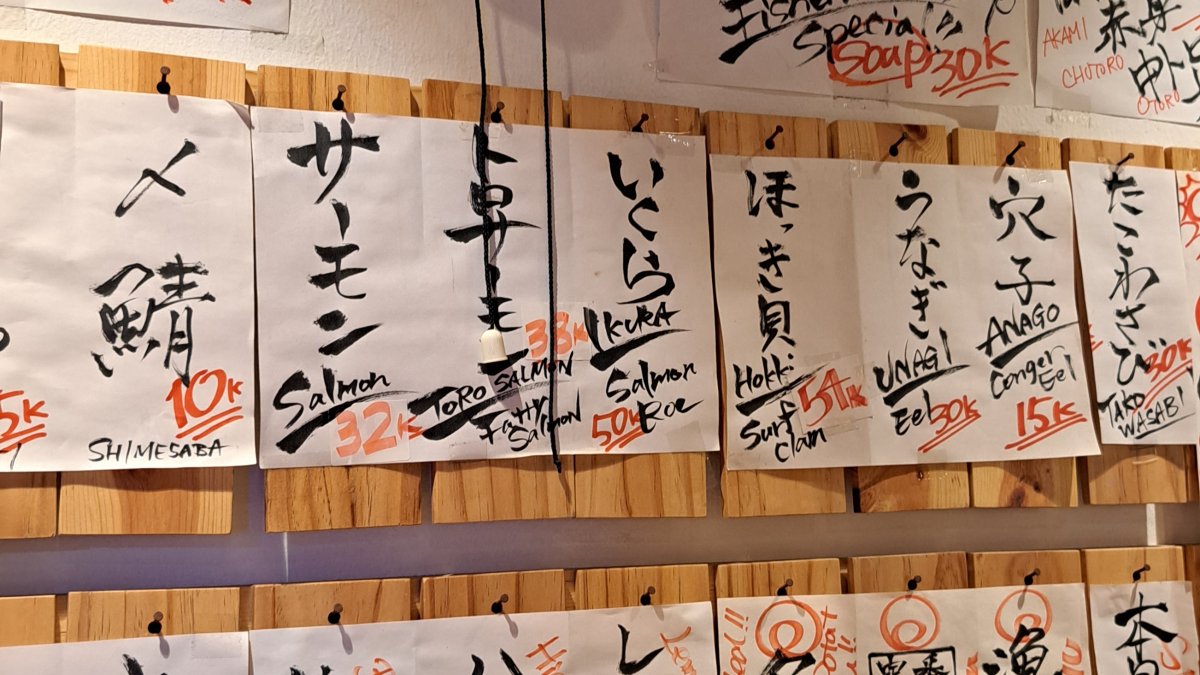 Special
Soap 30K
AKAMI
CHUTORO
OTORO
5K
〆鯖
10K
SHIMESABA
サーモン
Salmon
32K
トロサーモン
33K
TORO SALMON
Fatty
Salmon
いくら
IKURA
Salmon
Roe
50K
ほっき貝
Hokki
Surf
Clam
54K
うなぎ
UNAGI
Eel
30K
穴子
ANAGO
Conger
Eel
15K
たこわさび
30K
TAKO
WASABI